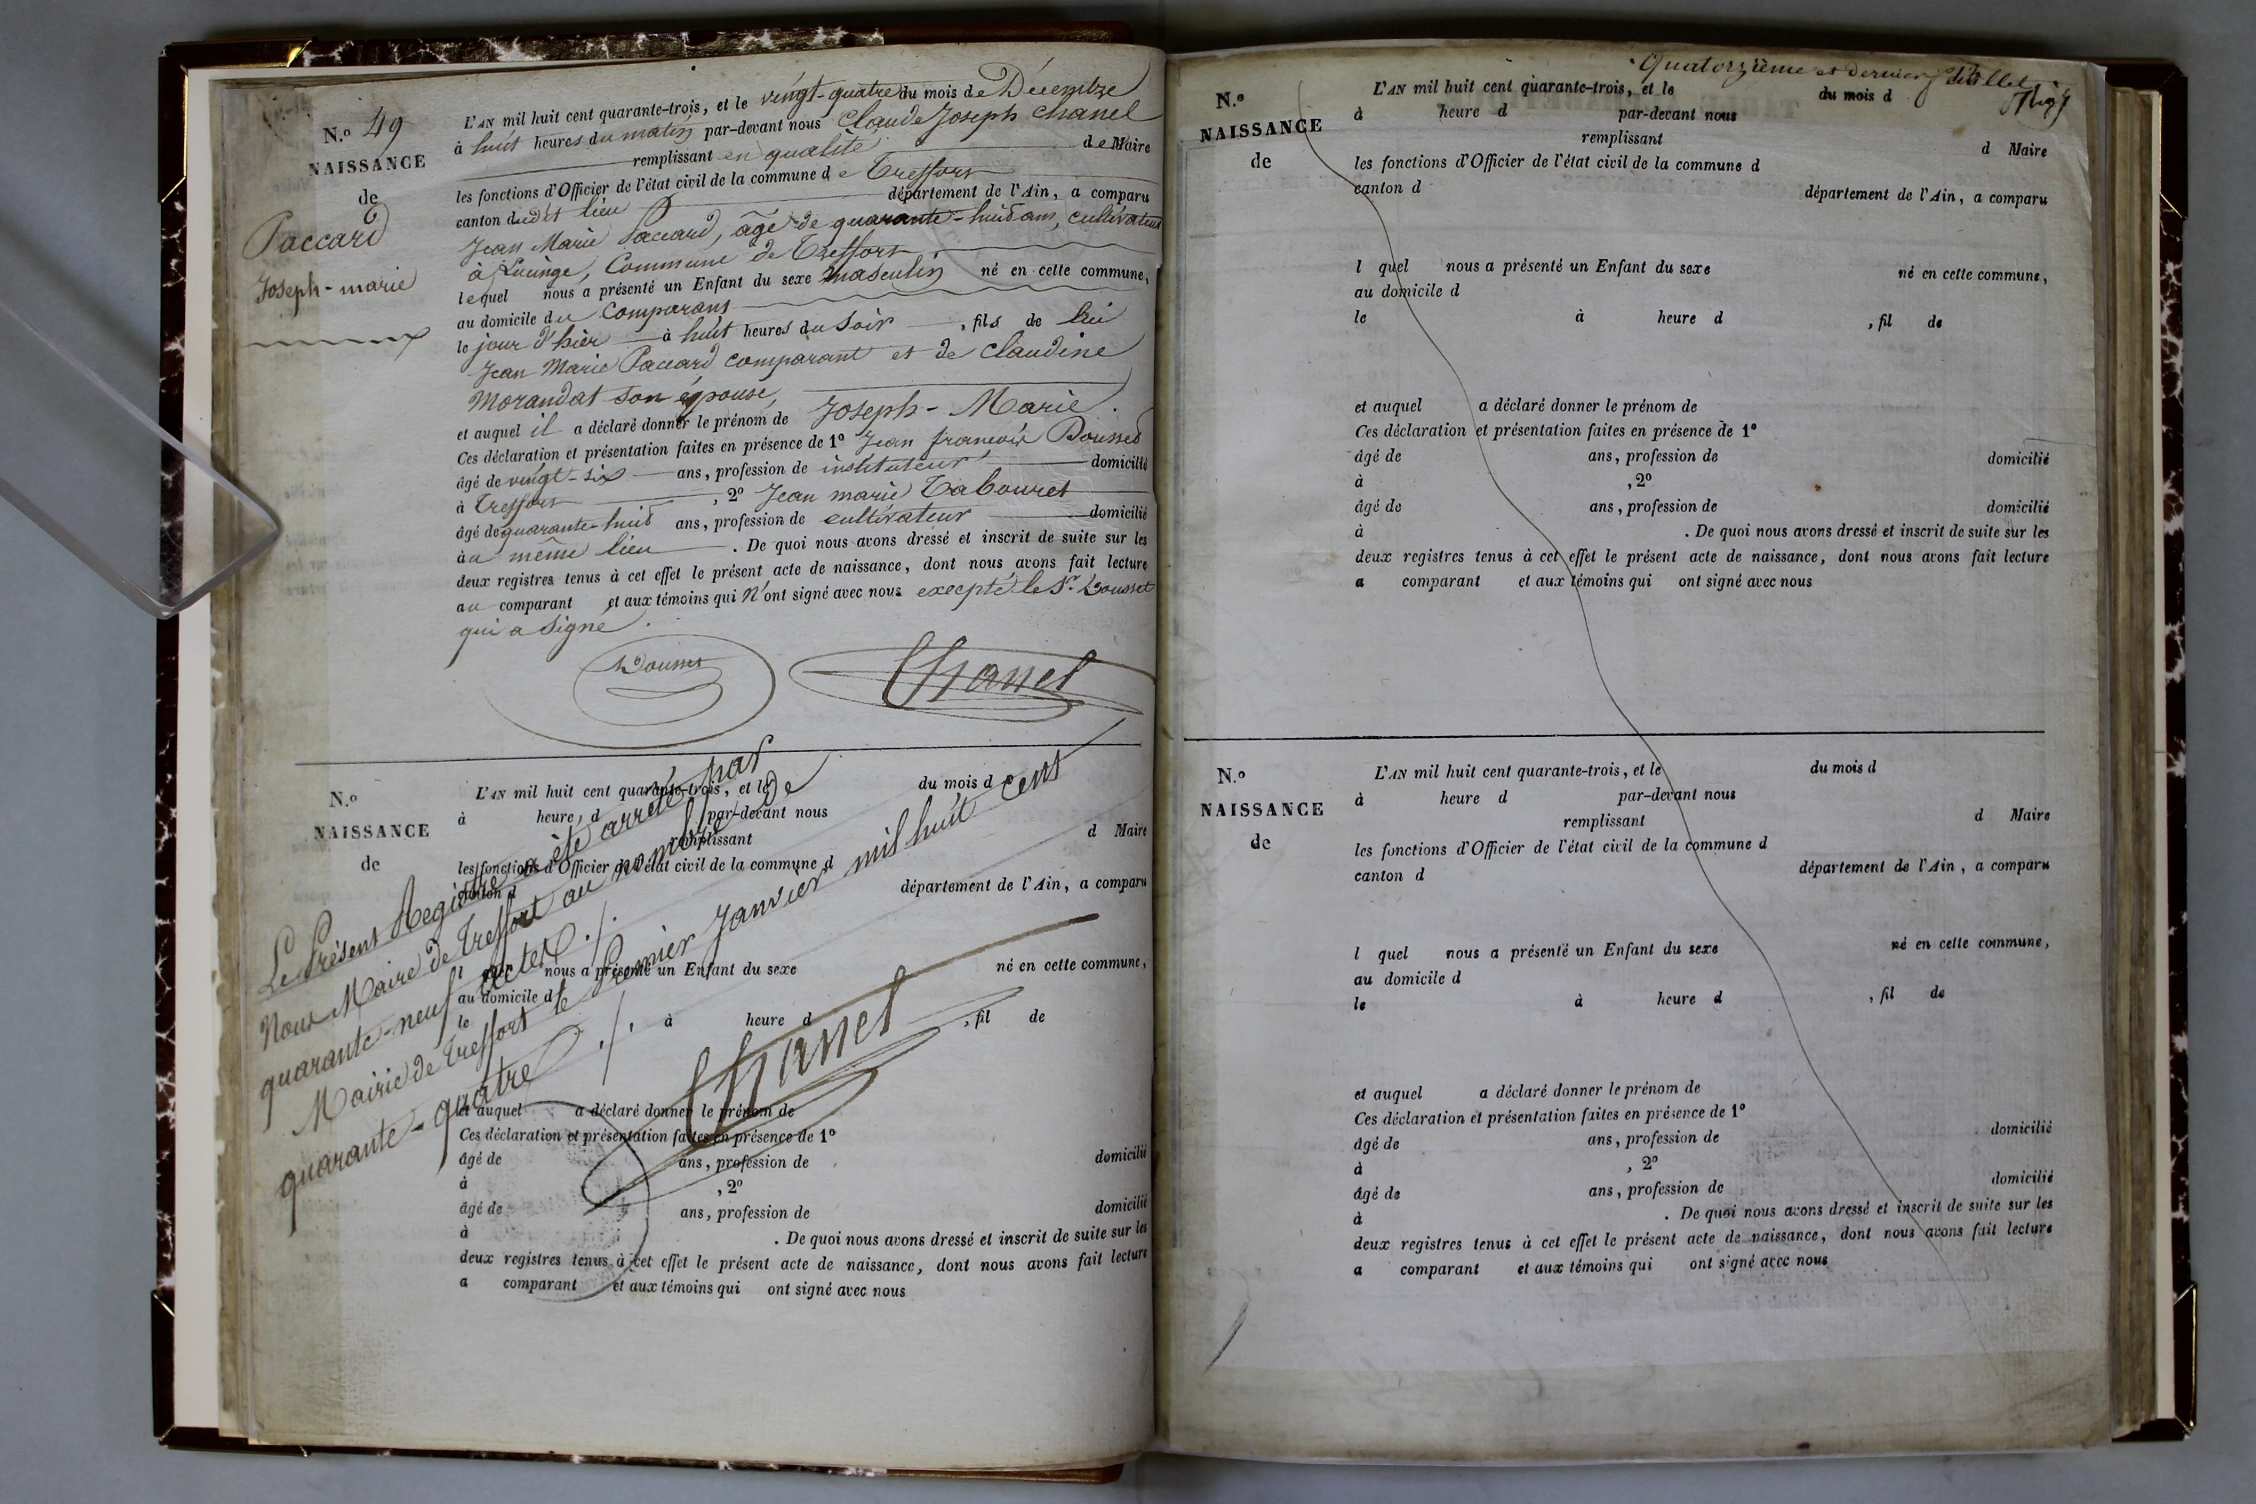 N.o 49
NAISSANCE
de
Paccard
Joseph-marie
L'AN mil huit cent quarante-trois, et le vingt-quatre du mois de Décembre
à huit heures du matin par-devant nous Claude Joseph Chanel
remplissant en qualité de Maire
les fonctions d'Officier de l'état civil de la commune de Treffort
canton dudit lieu département de l'Ain, a comparu
Jean Marie Paccard, âgé de quarante-huit ans, cultivateur
à Lucinge, Commune de Treffort
lequel nous a présenté un Enfant du sexe masculin né en cette commune,
au domicile du Comparant
le jour d'hier à huit heures du soir, fils de lui
Jean Marie Paccard comparant et de Claudine
Morandat son épouse,
et auquel il a déclaré donner le prénom de Joseph-Marie.
Ces déclaration et présentation faites en présence de 1o Jean françois Dousset
âgé de vingt-six ans, profession de instituteur domicilié
à Treffort, 2o Jean marie Tabouret
âgé de quarante-huit ans, profession de cultivateur domicilié
au même lieu. De quoi nous avons dressé et inscrit de suite sur les
deux registres tenus à cet effet le présent acte de naissance, dont nous avons fait lecture
au comparant et aux témoins qui n'ont signé avec nous excepté le Sr. Dousset
qui a signé.
Dousset Chanel
N.o
NAISSANCE
de
L'AN mil huit cent quarante-trois, et le du mois d
à heure d par-devant nous
remplissant d Maire
les fonctions d'Officier de l'état civil de la commune d
canton d département de l'Ain, a comparu
l quel nous a présenté un Enfant du sexe né en cette commune,
au domicile d
le à heure d, fil de
et auquel a déclaré donner le prénom de
Ces déclaration et présentation faites en présence de 1o
âgé de ans, profession de domicilié
à , 2o
âgé de ans, profession de domicilié
à . De quoi nous avons dressé et inscrit de suite sur les
deux registres tenus à cet effet le présent acte de naissance, dont nous avons fait lecture
a comparant et aux témoins qui ont signé avec nous
Le Présent Registre a été arrêté par
Nous Maire de Treffort au nombre de
quarante-neuf actes./.
Mairie de Treffort le Premier Janvier mil huit cent
quarante-quatre./.
Chanel
Quatorzième et dernier feuillet
N.o
NAISSANCE
de
L'AN mil huit cent quarante-trois, et le du mois d
à heure d par-devant nous
remplissant d Maire
les fonctions d'Officier de l'état civil de la commune d
canton d département de l'Ain, a comparu
l quel nous a présenté un Enfant du sexe né en cette commune,
au domicile d
le à heure d , fil de
et auquel a déclaré donner le prénom de
Ces déclaration et présentation faites en présence de 1o
âgé de ans, profession de domicilié
à , 2o
âgé de ans, profession de domicilié
à . De quoi nous avons dressé et inscrit de suite sur les
deux registres tenus à cet effet le présent acte de naissance, dont nous avons fait lecture
a comparant et aux témoins qui ont signé avec nous
N.o
NAISSANCE
de
L'AN mil huit cent quarante-trois, et le du mois d
à heure d par-devant nous
remplissant d Maire
les fonctions d'Officier de l'état civil de la commune d
canton d département de l'Ain, a comparu
l quel nous a présenté un Enfant du sexe né en cette commune,
au domicile d
le à heure d , fil de
et auquel a déclaré donner le prénom de
Ces déclaration et présentation faites en présence de 1o
âgé de ans, profession de domicilié
à , 2o
âgé de ans, profession de domicilié
à . De quoi nous avons dressé et inscrit de suite sur les
deux registres tenus à cet effet le présent acte de naissance, dont nous avons fait lecture
a comparant et aux témoins qui ont signé avec nous